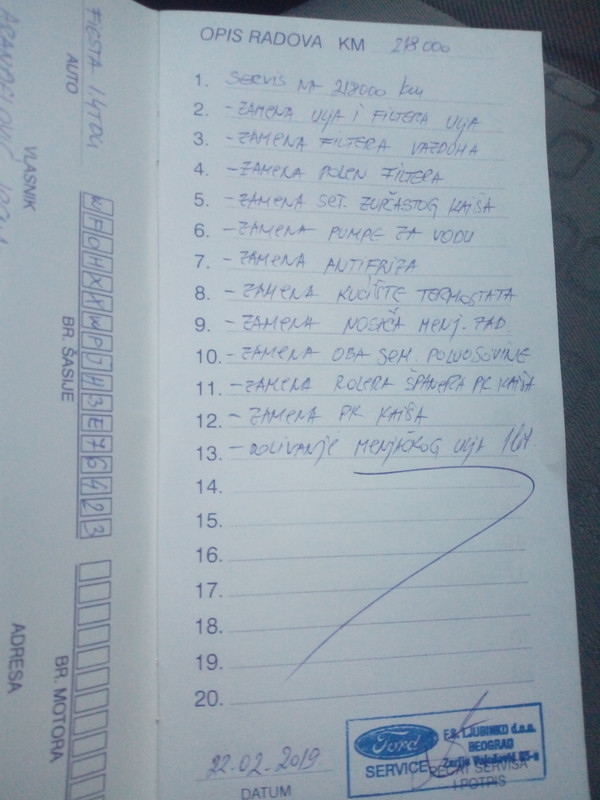 OPIS RADOVA KM 218 000
1. SERVIS NA 218000 km
2. - ZAMENA ULJA I FILTERA ULJA
3. - ZAMENA FILTERA VAZDUHA
4. - ZAMENA POLEN FILTERA
5. - ZAMENA SET. ZUPČASTOG KAIŠA
6. - ZAMENA PUMPE ZA VODU
7. - ZAMENA ANTIFRIZA
8. - ZAMENA KUĆIŠTE TERMOSTATA
9. - ZAMENA NOSAČA MENJ. ZAD.
10. - ZAMENA OBA SEM. POLUOSOVINE
11. - ZAMENA ROLERA ŠPANERA PK KAIŠA
12. - ZAMENA PK KAIŠA
13. - DOLIVANJE MENJAČKOG ULJA 1lit
14.
15.
16.
17.
18.
19.
20.
22.02.2019.
DATUM
Ford
SERVICE
F.S. LJUBINKO d.o.o.
BEOGRAD
PEČAT SERVISA
I POTPIS
FIESTA 1.4TDCi
AUTO
VLASNIK
WF0HXXWPJH3E76423
BR. ŠASIJE
BR. MOTORA
ADRESA